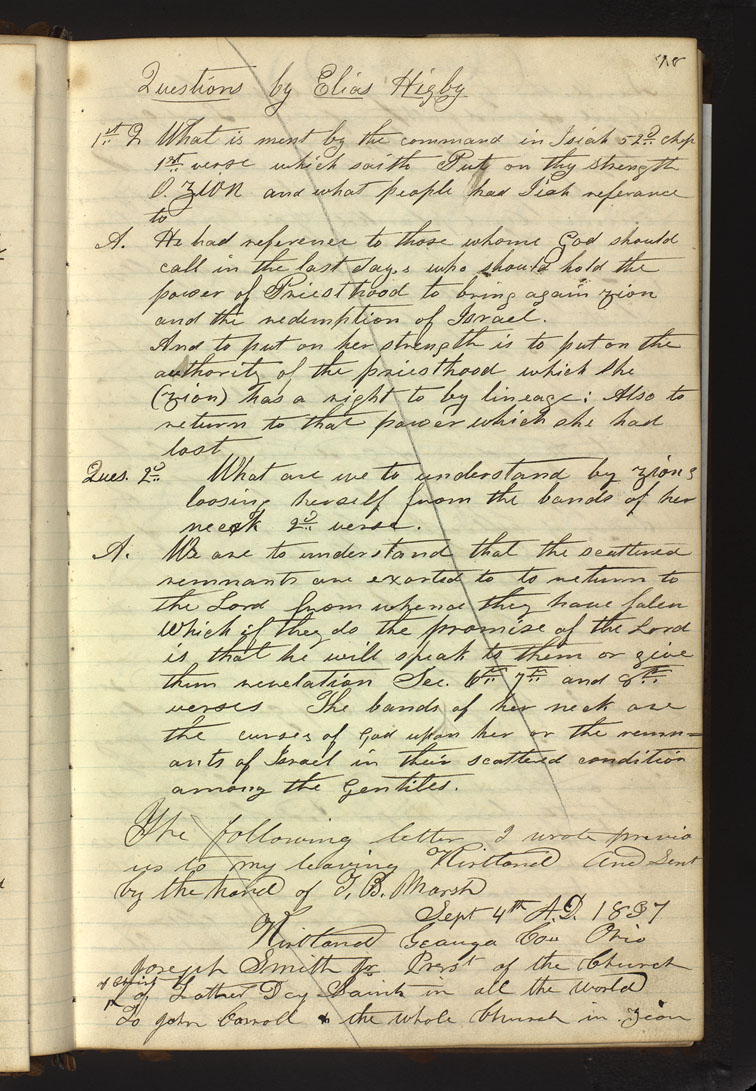 18
Questions by Elias Higby
1st Q What is ment by the command in Isiah 52d chap
1st verse which saith Put on thy strength
O Zion and what people had Isah referance
to
A. He had referance to those whome God should
call in the last days who should hold the
power of Priesthood to bring again zion
and the redemption of Israel.
And to put on her strength is to put on the
authority of the priesthood which she
(zion) has a right to by lineage: Also to
return to that power which she had
lost
Ques. 2d What are we to understand by zions
loosing herself from the bands of her
neck 2d verse.
A. We are to understand that the scattered
remnants are exorted to to return to
the Lord from whence they have falen
which if they do the promise of the Lord
is that he will speak to them or give
them revelation See 6th 7th and 8th
verses The bands of her neck are
the curses of God upon her or the remn=
ants of Israel in their scattered condition
among the Gentiles.
The following letter I wrote previo
us to my leaving Kirtland and sent
by the hand of T. B. Marsh
Sept 4th A.D. 1837
Kirtland Geauga Cou Ohio
Joseph Smith Jr Prest of the Church
of Christ of Latter Day Saints in all the world
To John Corroll & the whole Church in Zion